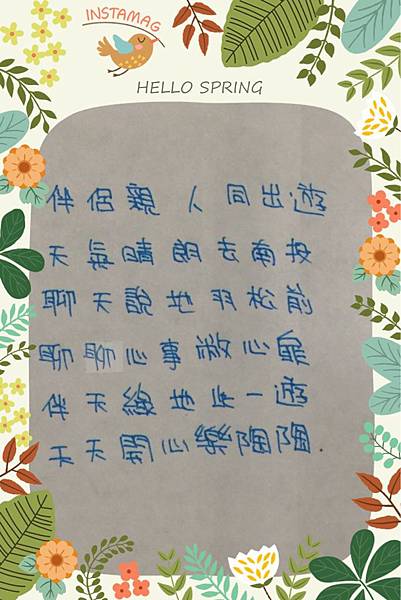 INSTAMAG
HELLO SPRING
伴侶親人同出遊
天氣晴朗去南投
聊天說地羽松前
聊聊心事敞心扉
伴天綠地此一遊
天天開心樂陶陶.